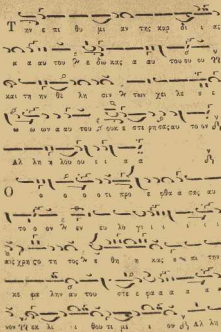 Τ ην ε πι θυ μι αν της καρ δι ας
κ α αυ του ε δω κας α αυ του ου ου
και τη ην θε λη σιν τω χει λε ε
ω ω ων α αυ του ου κ ε στε ρη σας αυ το ον
Αλ λη λου ου ι ι α α
Ο ο ο ο τι προ ε φθα σα ς αυ
το ο ον εν ευ λο γι ι ι ι
αις χρη ζο τη τος ε θη η κας ε πι την
κε φα λην αυ του στε ε φα α α α
νον εκ λι ι θου τι μι ου Αλ λη